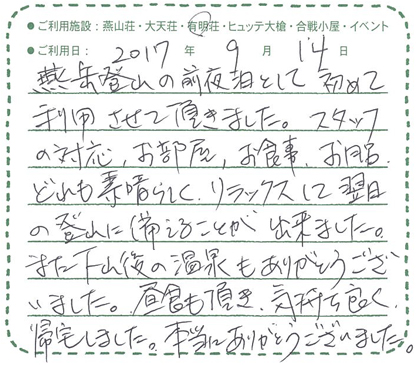 ●ご利用施設：燕山荘・大天荘・有明荘・ヒュッテ大槍・合戦小屋・イベント
●ご利用日： 2017 年 9 月 14 日
燕岳登山の前夜泊として 初めて
利用させて頂きました。スタッフ
の対応、お部屋、お食事、お風呂、
どれも素晴らしく、リラックスして翌日
の登山に備えることが 出来ました。
また下山後の温泉もありがとうござ
いました。昼食も頂き、気持ち良く、
帰宅しました。本当にありがとうございました。